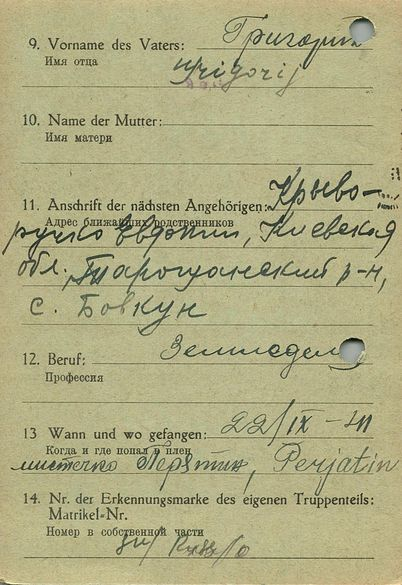 9. Vorname des Vaters: Григорий
Имя отца
Grigorij
10. Name der Mutter:
Имя матери
11. Anschrift der nächsten Angehörigen: Крыво-
Адрес ближайших родственников
ручко Евдокии, Киевская
обл. Таращанский р-н,
с. Бовкун
12. Beruf: Земледел
Профессия
13 Wann und wo gefangen: 22/IX - 41
Когда и где попал в плен
местечко Пирятин, Perjatin
14. Nr. der Erkennungsmarke des eigenen Truppenteils:
Matrikel-Nr.
Номер в собственной части